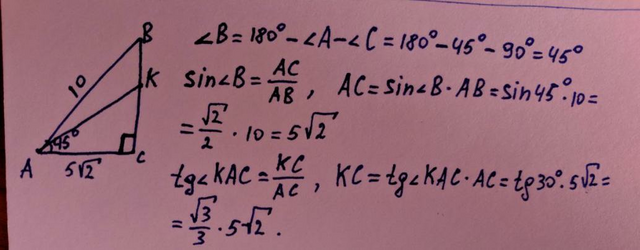 B
10
K
45°
A
5√2
C
∠B = 180° - ∠A - ∠C = 180° - 45° - 90° = 45°
sin∠B = AC/AB , AC = sin∠B · AB = sin45° · 10 =
= √2/2 · 10 = 5√2
tg∠KAC = KC/AC , KC = tg∠KAC · AC = tg30° · 5√2 =
= √3/3 · 5√2 .